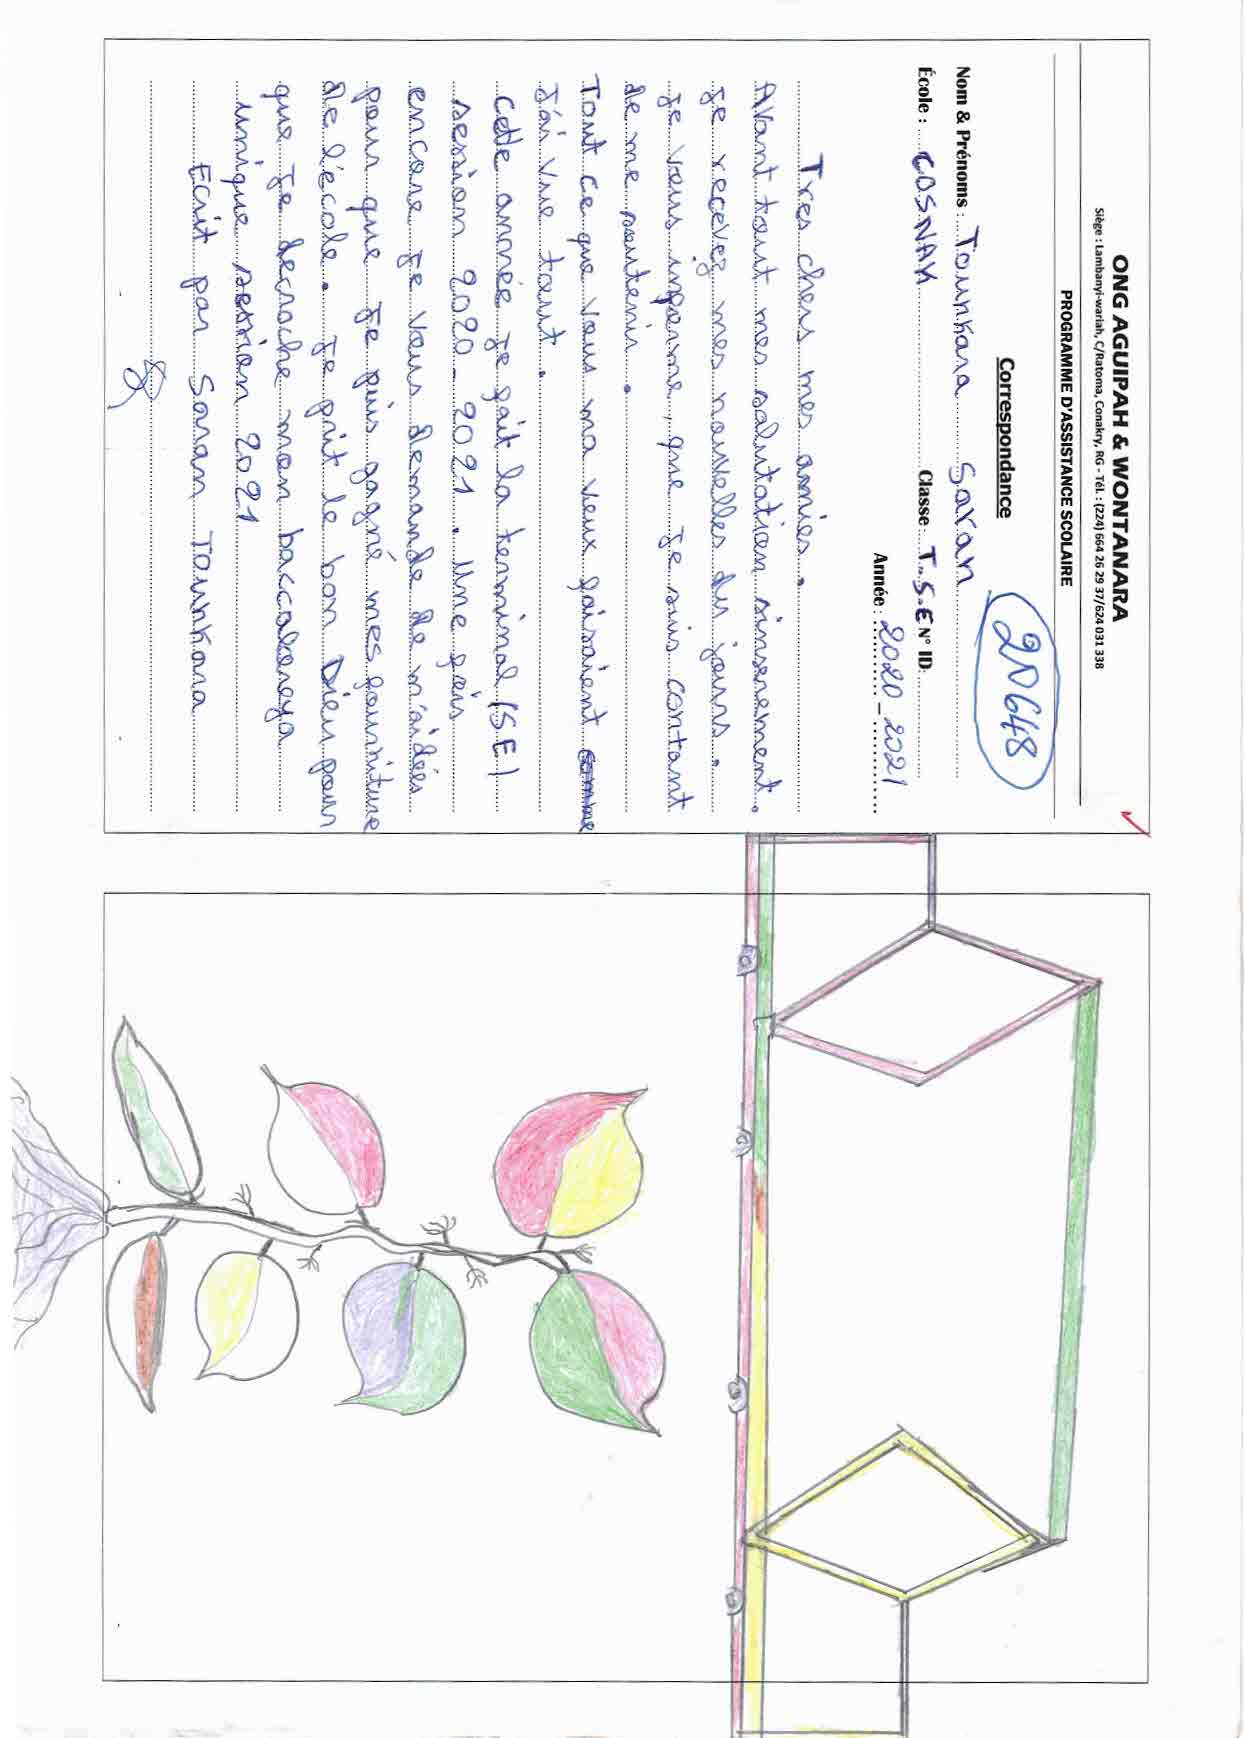 ONG AGUIPAH & WONTANARA
Siège : Lambanyi-wariah, C/Ratoma, Conakry, RG - Tél. : (224) 664 26 29 37/624 031 338
PROGRAMME D'ASSISTANCE SCOLAIRE
Correspondance
2N648
Nom & Prénoms : Tounkara Saran
École : COSNAH Classe : T.S.E N° ID:
Année : 2020 - 2021
Tres chers mes amies.
Avant tout mes salutation sinserement.
Je recevez mes nouvelles du jours.
Je vous informe, que Je suis contant
de me soutenir.
Tout ce que vous ma veux faisaient comme
J'ai vue tout.
Cette année Je fait la terminal (SE)
session 2020-2021. Une fois
encore Je vous demande de m'aidées
pour que Je puis gagné mes fourniture
de l'école. Je prit le bon Dieu pour
que Je decroche mon baccaloreya
unique session 2021
Ecrit par Saran Tounkara